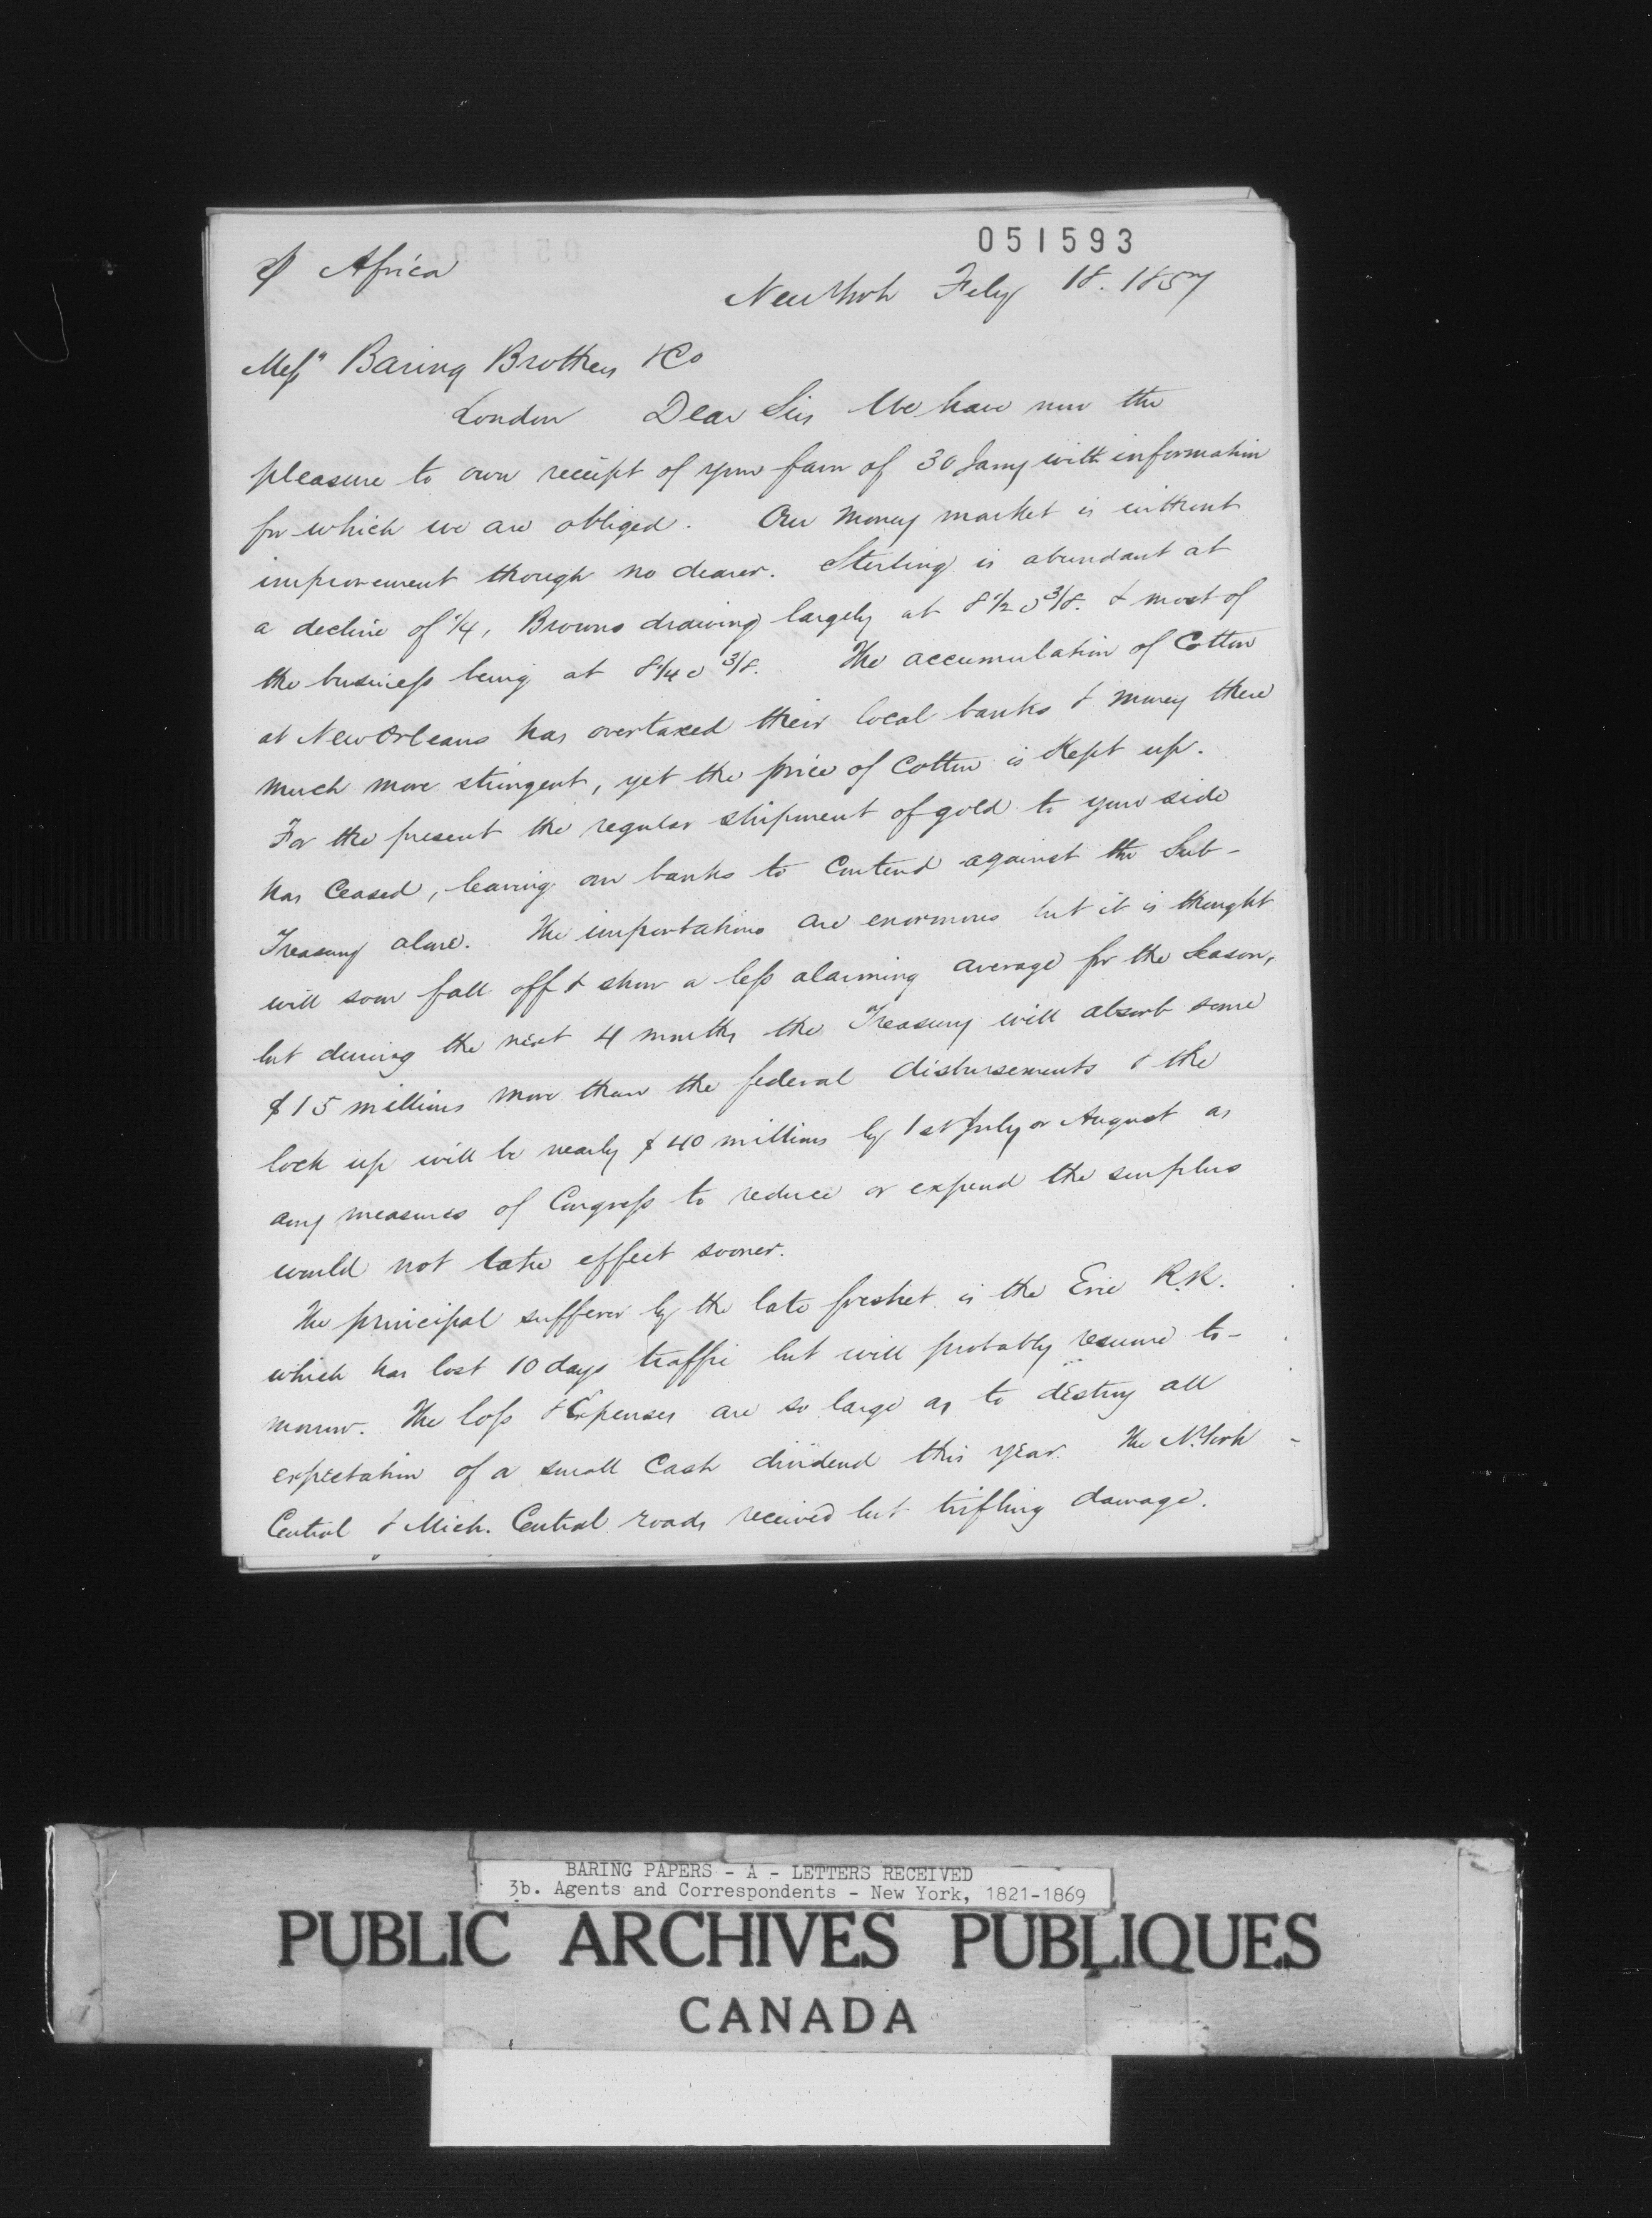 051593
℘ Africa
New York Feby 18. 1857
Messrs Baring Brothers & Co
London Dear Sirs We have now the
pleasure to own receipt of your favr of 30 Jany with information
for which we are obliged. Our money market is without
improvement though no dearer. Sterling is abundant at
a decline of 1/4, Browns drawing largely at 8 1/2 @ 3/8. & most of
the business being at 8 1/4 @ 3/8. The accumulation of Cotton
at New Orleans has overtaxed their local banks & money there
much more stringent, yet the price of Cotton is Kept up.
For the present the regular shipment of gold to your side
has Ceased, leaving our banks to Contend against the Sub-
Treasury alone. The importations are enormous but it is thought
will soon fall off & show a less alarming average for the Season,
but during the next 4 months the Treasury will absorb some
$15 millions more than the federal disbursements & the
lock up will be nearly $40 millions by 1st July or August as
any measures of Congress to reduce or expend the surplus
would not take effect sooner.
The principal sufferer by the late freshet is the Erie R.R.
which has lost 10 days traffic but will probably resume to-
morrow. The loss & Expenses are so large as to destroy all
expectation of a small Cash dividend this year. The N. York
Central & Mich. Central roads received but trifling damage.
BARING PAPERS - A - LETTERS RECEIVED
3b. Agents and Correspondents - New York, 1821-1869
PUBLIC ARCHIVES PUBLIQUES
CANADA